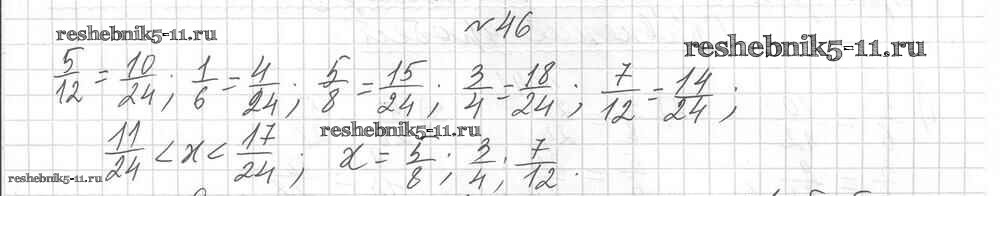 №46
reshebnik5-11.ru
reshebnik5-11.ru
5/12 = 10/24; 1/6 = 4/24; 5/8 = 15/24; 3/4 = 18/24; 7/12 = 14/24;
reshebnik5-11.ru
11/24 < x < 17/24; x = 5/8; 3/4; 7/12.
reshebnik5-11.ru